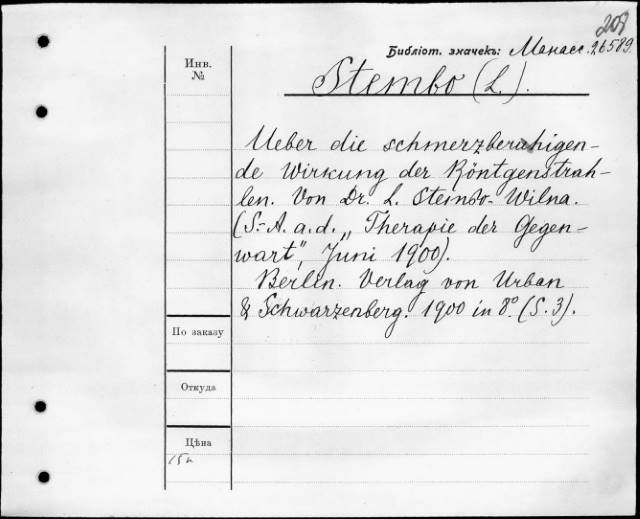 208
Библіот. значекъ: Манасс. 26589.
Инв.
№
Stembo (L.).
Ueber die schmerzberuhigen-
de Wirkung der Röntgenstrah-
len. Von Dr. L. Stembo-Wilna.
(S.-A. a. d. „Therapie der Gegen-
wart“, Juni 1900).
Berlin. Verlag von Urban
& Schwarzenberg. 1900 in 8°. (S. 3).
По заказу
Откуда
Цѣна